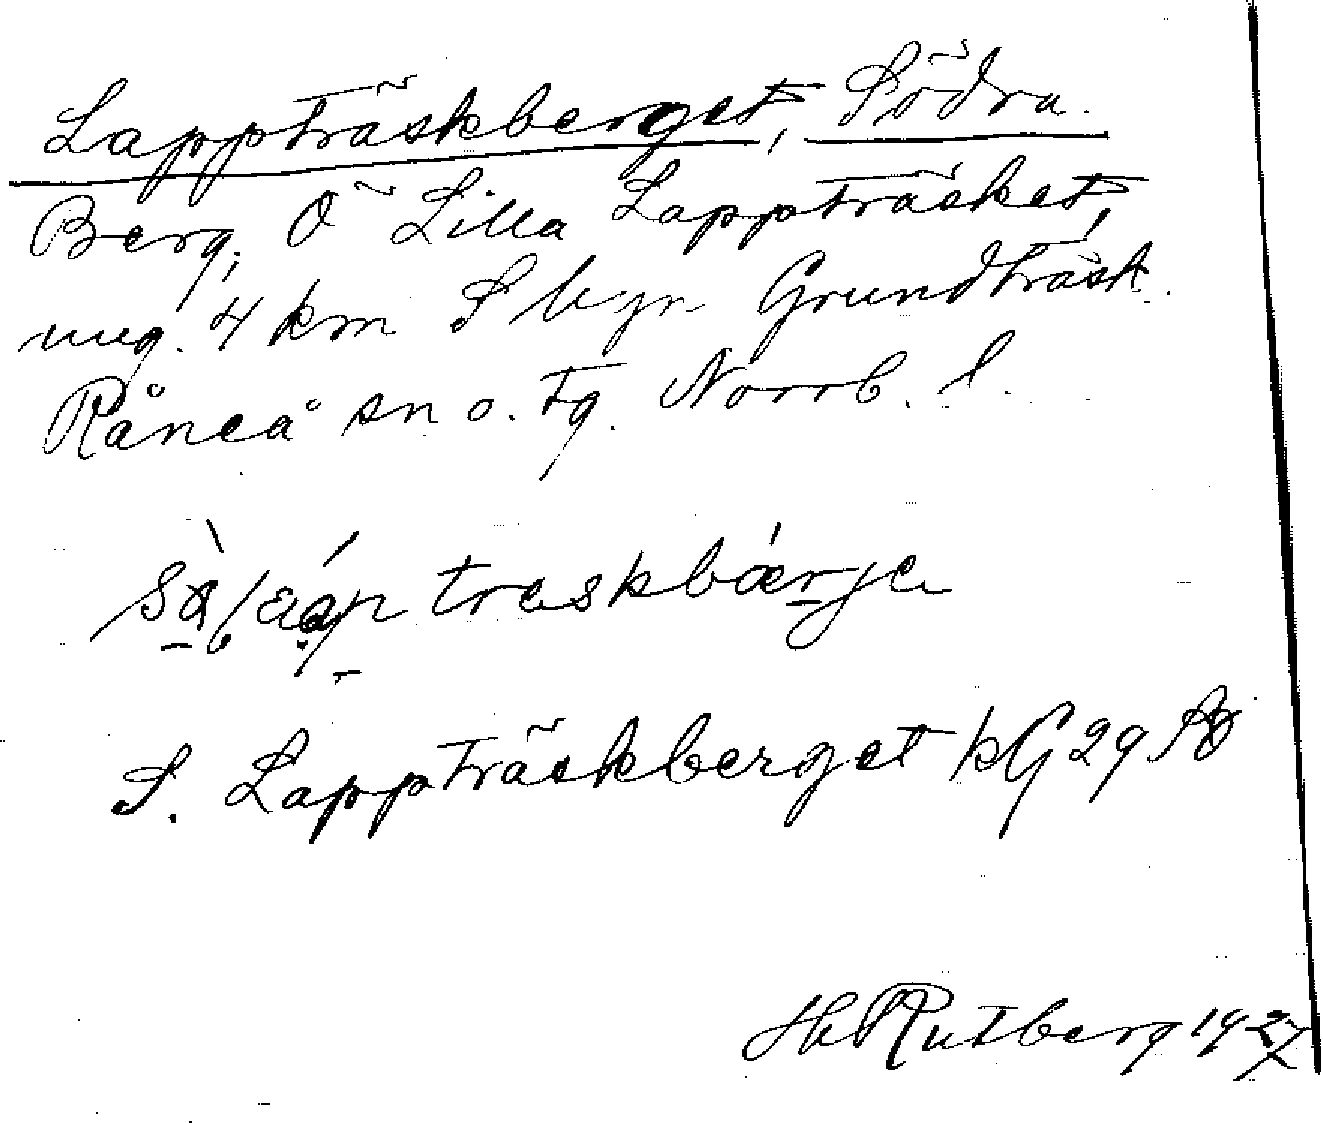 Lappträskberget, Södra.
Berg, Ö Lilla Lappträsket,
ung. 4 km S byn Grundträsk.
Råneå sn o. tg. Norrb. l.
treskbærje
S. Lappträskberget kG 29
H Rutberg 1927